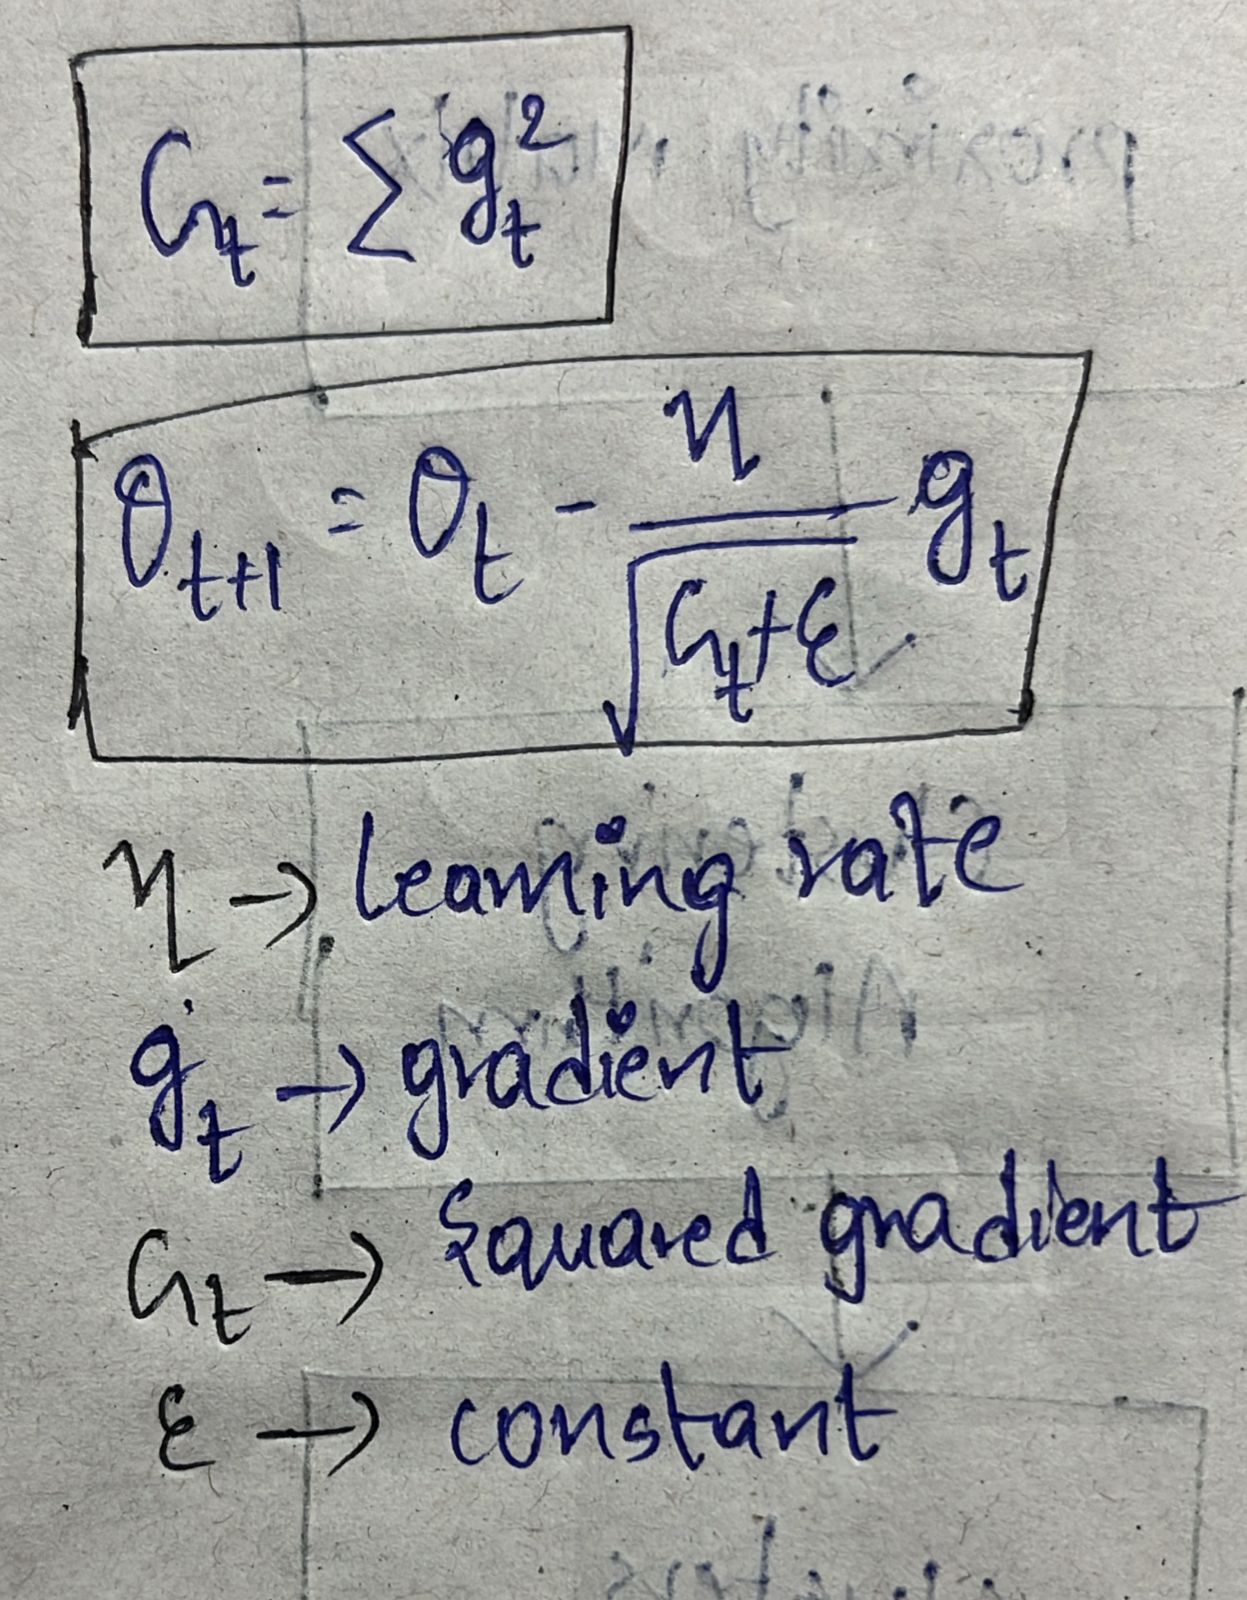 G_t = Σ g_t^2
θ_{t+1} = θ_t - η/√(G_t+ε) g_t
η → learning rate
g_t → gradient
G_t → Squared gradient
ε → constant